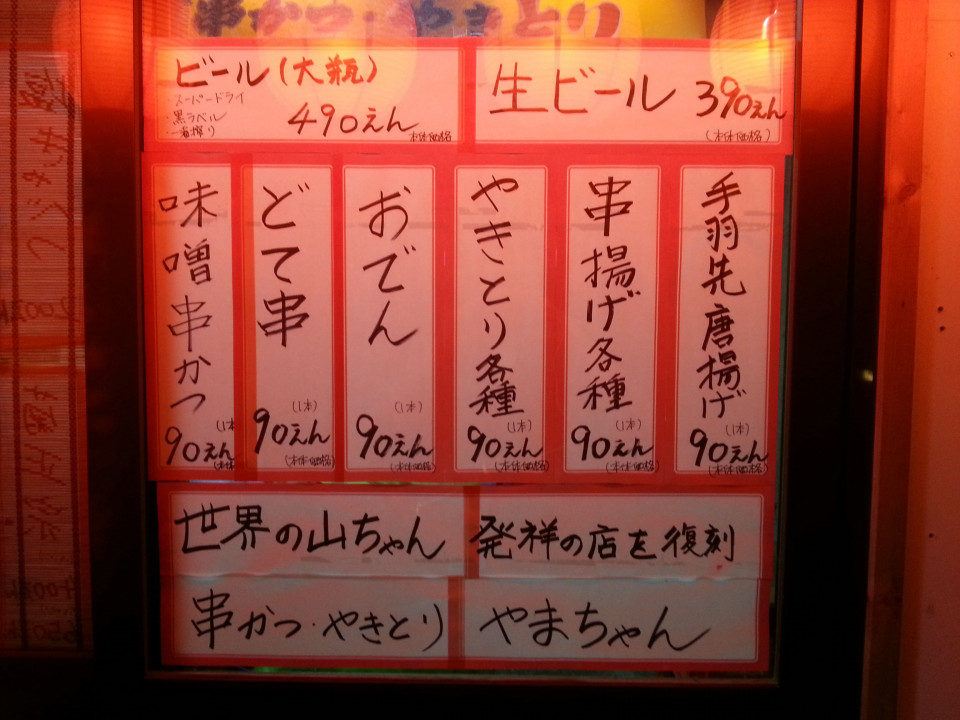 串かつ・やきとり
ビール(大瓶)
・スーパードライ
・黒ラベル
・一番搾り
490えん
本体価格
生ビール 390えん
(本体価格)
手羽先唐揚げ
(1本)
90えん
(本体価格)
串揚げ各種
(1本)
90えん
(本体価格)
やきとり各種
(1本)
90えん
(本体価格)
おでん
(1本)
90えん
(本体価格)
どて串
(1本)
90えん
(本体価格)
味噌串かつ
(1本
90えん
(本体
世界の山ちゃん
発祥の店を復刻
串かつ・やきとり
やまちゃん